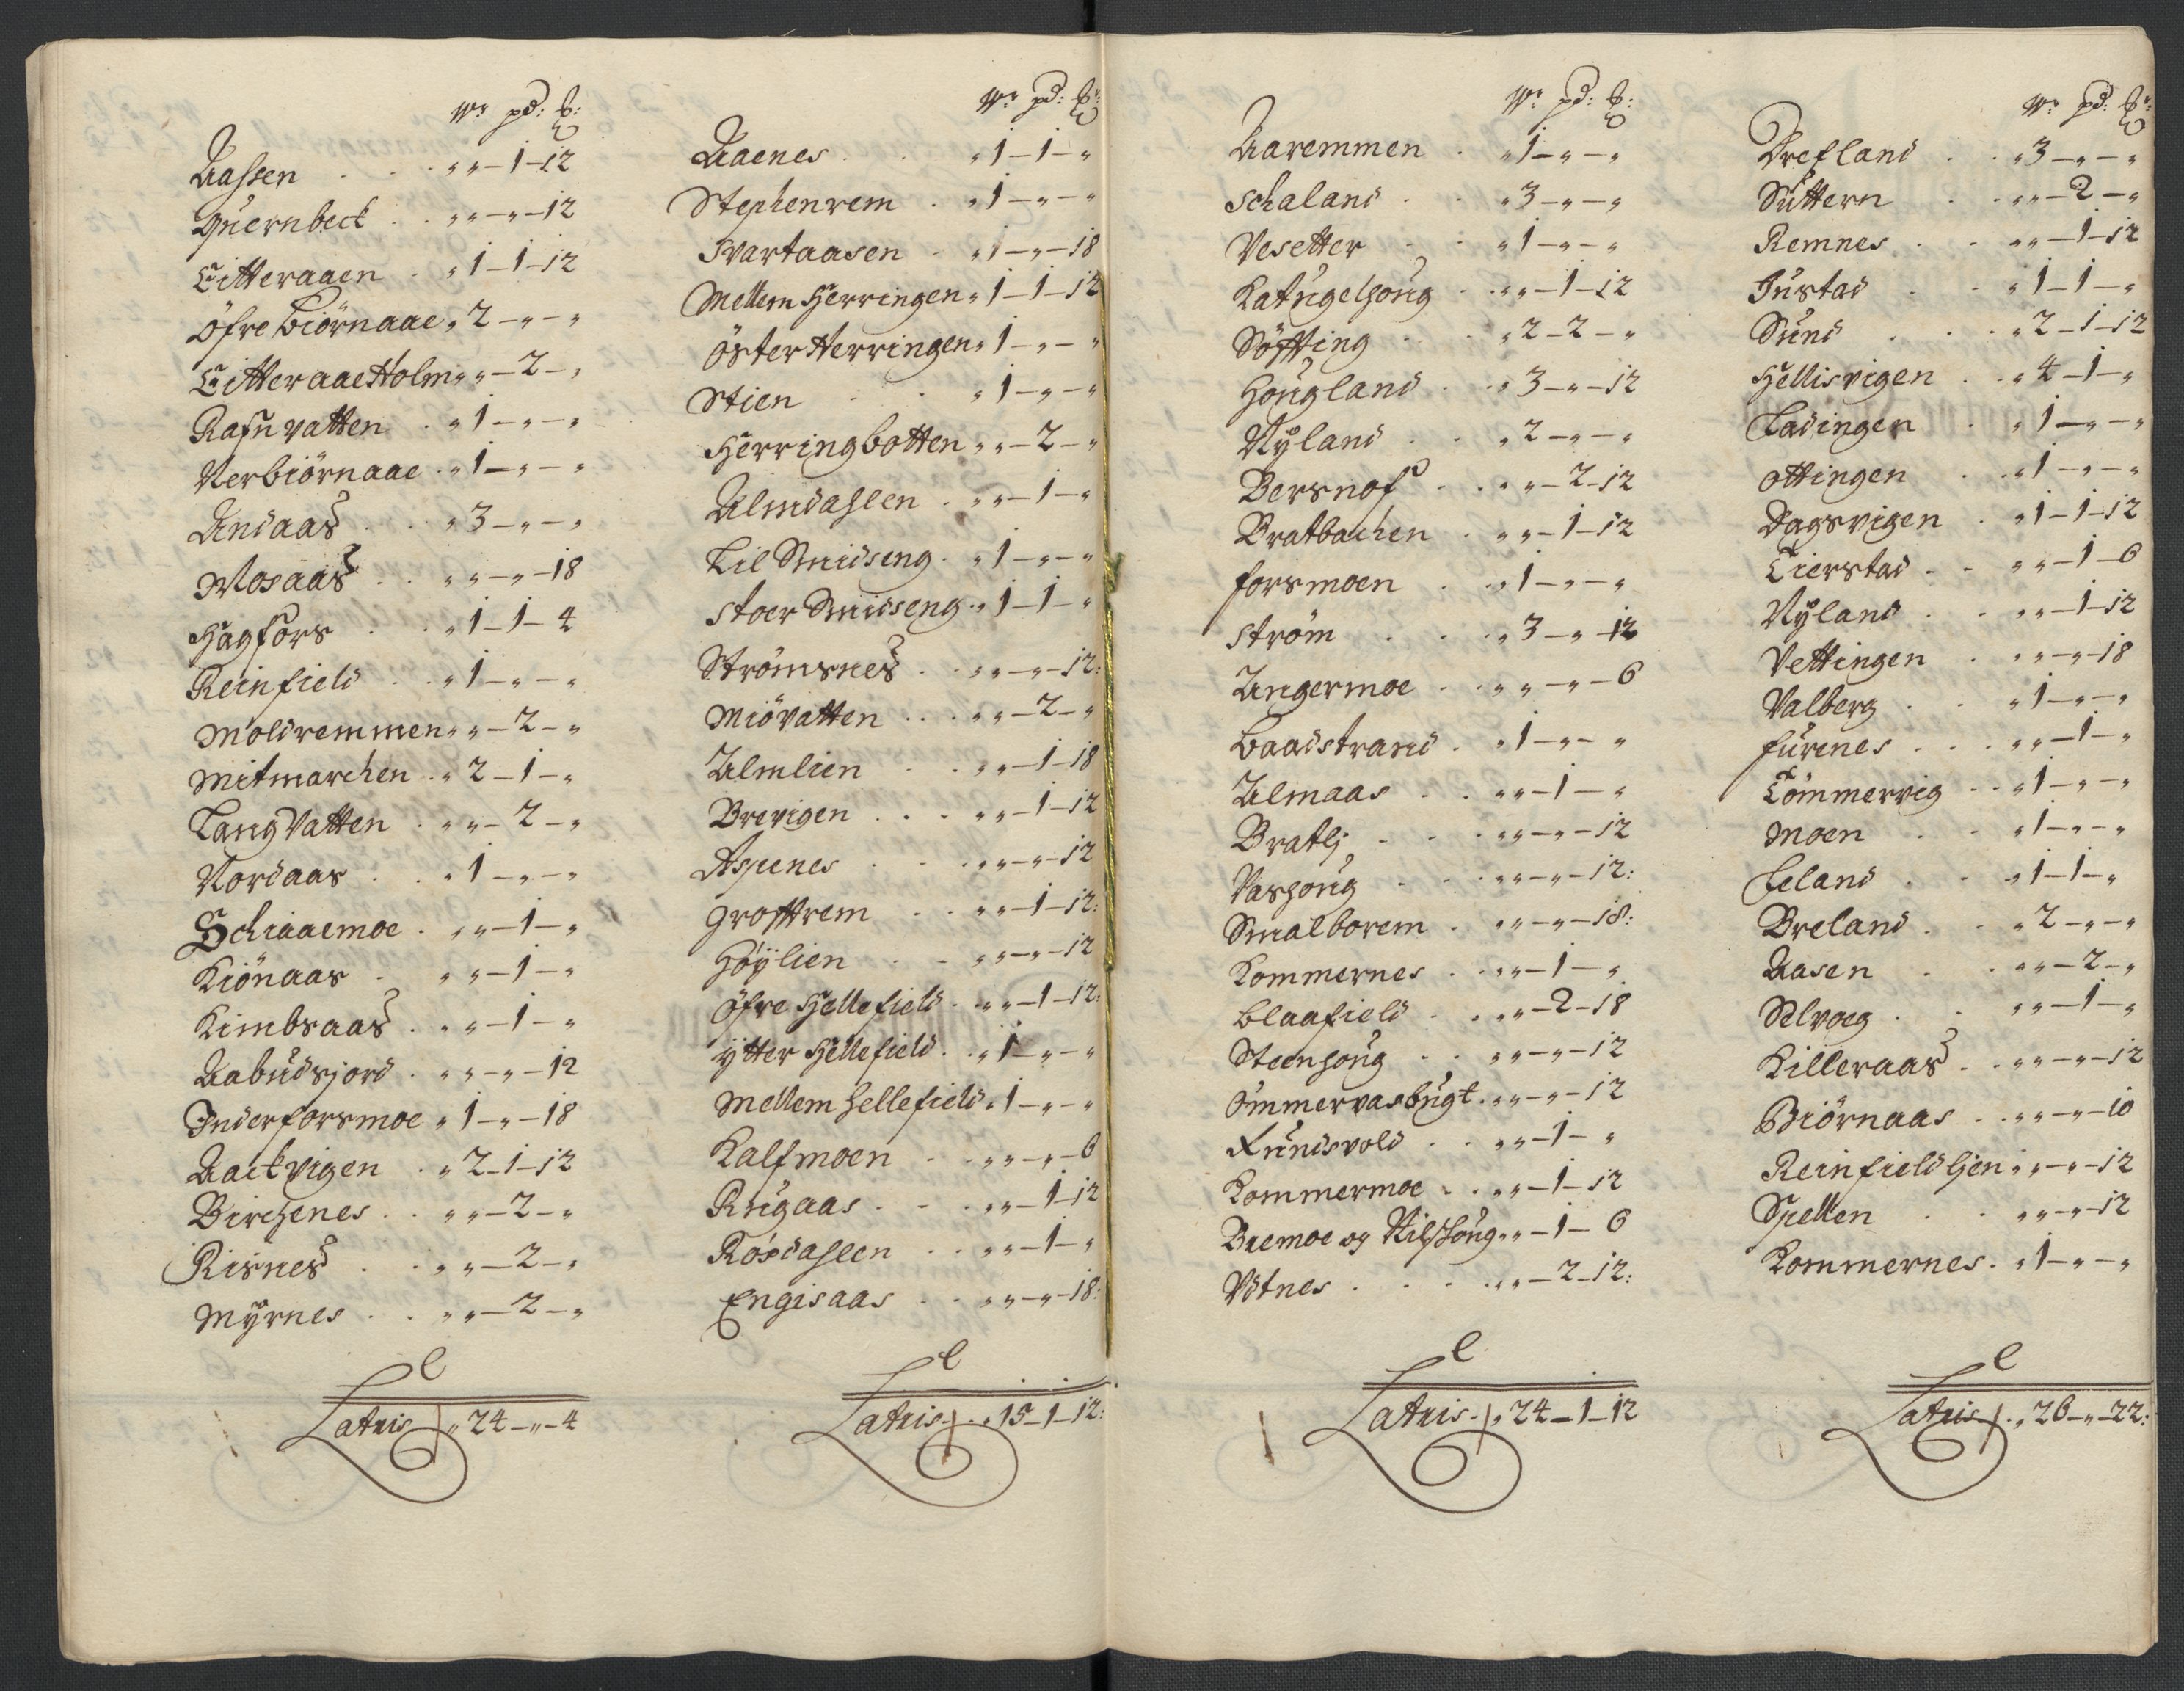 Wr pd: ℔:
Aassen . . . „ „ – 1 – 12
Quernbeck . . „ „ – „ – 12
Litteraaen . „ 1 – 1 – 12
Öfre Biörnaae „ 2 – „ – „
Litteraae Holm „ „ – 2 – „
Rafnvatten . „ 1 – „ – „
Nerbiörnaae . „ 1 – „ – „
Andaas . . „ 3 – „ – „
Mosaas . . „ „ – „ – 18
Hagfors . . „ 1 – 1 – 4
Reinfield . . „ 1 – „ – „
Moldremmen „ „ – 2 – „
Mitmarchen . „ 2 – 1 – „
Lang Vatten . „ „ – 2 – „
Nordaas . . „ 1 – „ – „
Schiaaemoe . „ „ – 1 – „
Kiönaas . „ „ – 1 – „
Kimbsaas . „ „ – 1 – „
Aabudsjord . „ „ – „ – 12
Inderforsmoe „ 1 – „ – 18
Aackvigen . „ 2 – 1 – 12
Birchenes . . „ „ – 2 – „
Risnes . . „ „ – 2 – „
Myrnes . . „ „ – 2 – „
Latris „ 24 – „ – 4
Wr pd: ℔:
Aaenes . . „ 1 – 1 – „
Stephenrem . „ 1 – „ – „
Svartaasen . „ 1 – „ – 18
Mellem Herringen „ 1 – 1 – 12
Öster Herringen „ 1 – „ – „
Stien . . „ 1 – „ – „
Herringbotten „ „ – 2 – „
Almdahlen . „ „ – 1 – „
Lil Smidseng . „ 1 – „ – „
Stoer Smidseng . „ 1 – 1 – „
Strömsnes . . „ „ – „ – 12:
Miövatten . . . „ „ – 2 – „
Almlien . . „ „ – 1 – 18
Brevigen . . . „ „ – 1 – 12
Aspenes . . . „ „ – „ – 12
Grofftrem . . „ „ – 1 – 12:
Höÿlien . . „ „ – „ – 12
Öfre Hellefield . „ „ – 1 – 12:
ÿtter Hellefield . „ 1 – „ – „
Mellem Hellefield „ 1 – „ – „
Kalfmoen . . „ „ – „ – 6
Rugaas . . . „ „ – 1 – 12
Rösdahlen . . „ „ – 1 – „
Engisaas . . „ „ – „ – 18:
Latris . . „ 15 – 1 – 12:
Wr pd: ℔:
Aaremmen . „ 1 – „ – „
Schaland . . „ 3 – „ – „
Vesetter . . „ 1 – „ – „
Katugelhoug . „ „ – 1 – 12
Söffting . . „ 2 – 2 – „
Hougland . . „ 3 – „ – 12
Nÿland . . „ 2 – „ – „
Bersnof . . „ „ – 2 – 12
Bratbachen . „ „ – 1 – 12
forsmoen . . „ 1 – „ – „
Ström . . . „ 3 – „ – 12
Angermoe . . „ „ – „ – 6
Baadstrand . „ 1 – „ – „
Almaas . . „ „ – 1 – „
Bratlj . . . „ „ – „ – 12
Vashoug . . . „ „ – „ – 12:
Smalborem . „ „ – „ – 18:
Kommernes . . „ „ – 1 – „
Blaafield . . „ „ – 2 – 18
Steenhoug . . „ „ – „ – 12
Ommervasbugt . „ „ – „ – 12
Lundsvold . . „ „ – 1 – „
Kommermoe . . „ „ – 1 – 12
Bremoe og Nilshoug „ „ – 1 – 6
Vitnes . . . . „ „ – 2 – 12:
Latris . „ 24 – 1 – 12
Wr pd: ℔:
Drefland . . „ 3 – „ – „
Suttern . . „ „ – 2 – „
Remnes . . „ „ – 1 – 12
Justad . . „ 1 – 1 – „
Sund . . . „ 2 – 1 – 12
Hellisvigen . . „ 4 – 1 – „
Ladingen . „ 1 – „ – „
Ottingen . . „ 1 – „ – „
Dagsvigen . „ 1 – 1 – 12
Lierstad . . „ „ – 1 – 6
Nÿland . . „ „ – 1 – 12
Vettingen . „ „ – „ – 18
Valberg . . „ 1 – „ – „
furenes . . . „ „ – 1 – „
Tömmervig . . „ 1 – „ – „
Moen . . „ 1 – „ – „
Leland . . „ 1 – 1 – „
Breland . . „ 2 – „ – „
Aasen . . „ „ – 2 – „
Selvoeg . . „ „ – 1 – „
Killeraas . . „ „ – „ – 12
Biörnaas . . „ „ – „ – 10
Reinfield Hien „ „ – „ – 12
Spellen . . „ „ – „ – 12
Kommernes . „ 1 – „ – „
Latris . „ 26 – „ – 22: